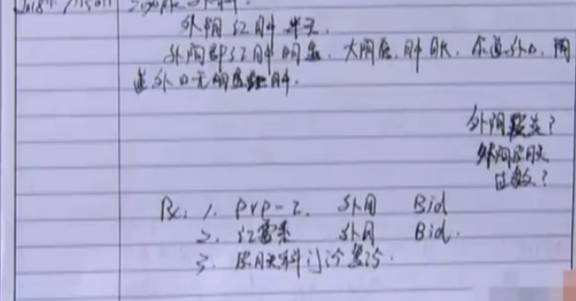 外阴红肿半天.
外阴部红肿明显. 大阴唇. 肿胀. 尿道外口. 阴
道外口无明显红肿.
外阴炎?
外阴皮肤
过敏?
Rx: 1. PVP-I. 外用 Bid
2. 红霉素 外用 Bid.
3. 皮肤科门诊就诊.